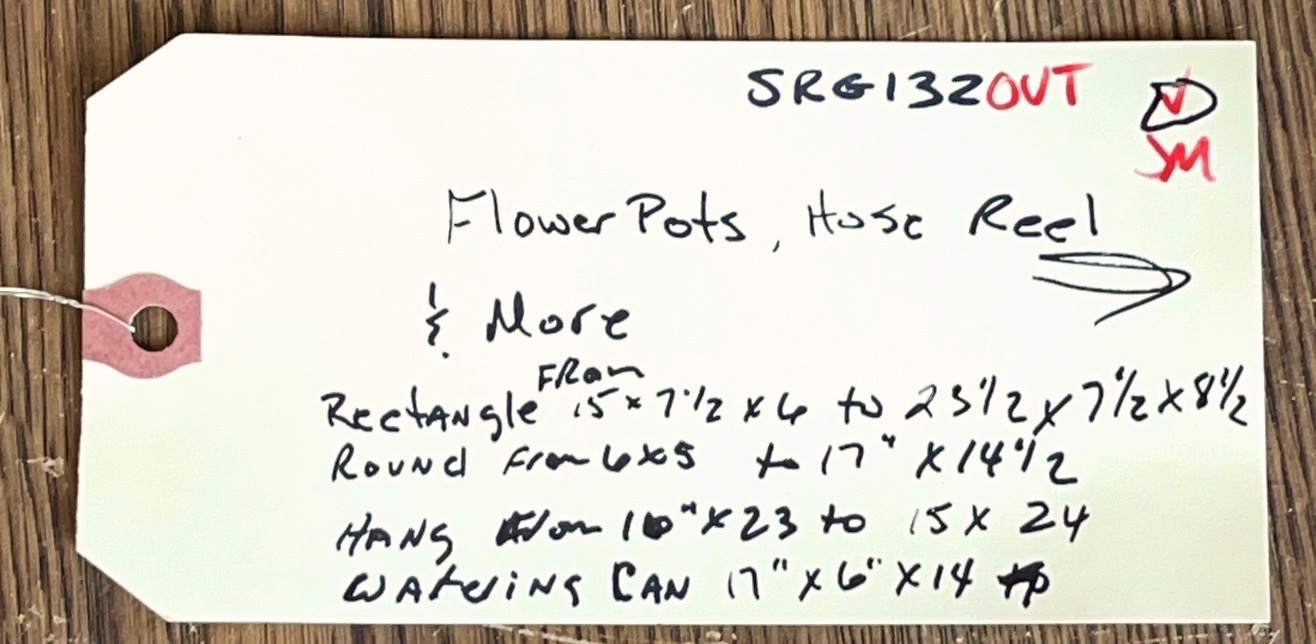 SRG132OUT
JM
Flower Pots, Hose Reel
& More
From
Rectangle 15 x 7 1/2 x 6 to 23 1/2 x 7 1/2 x 8 1/2
Round From 6x5 to 17" x 14 1/2
Hang from 10" x 23 to 15 x 24
Watering Can 17" x 6" x 14